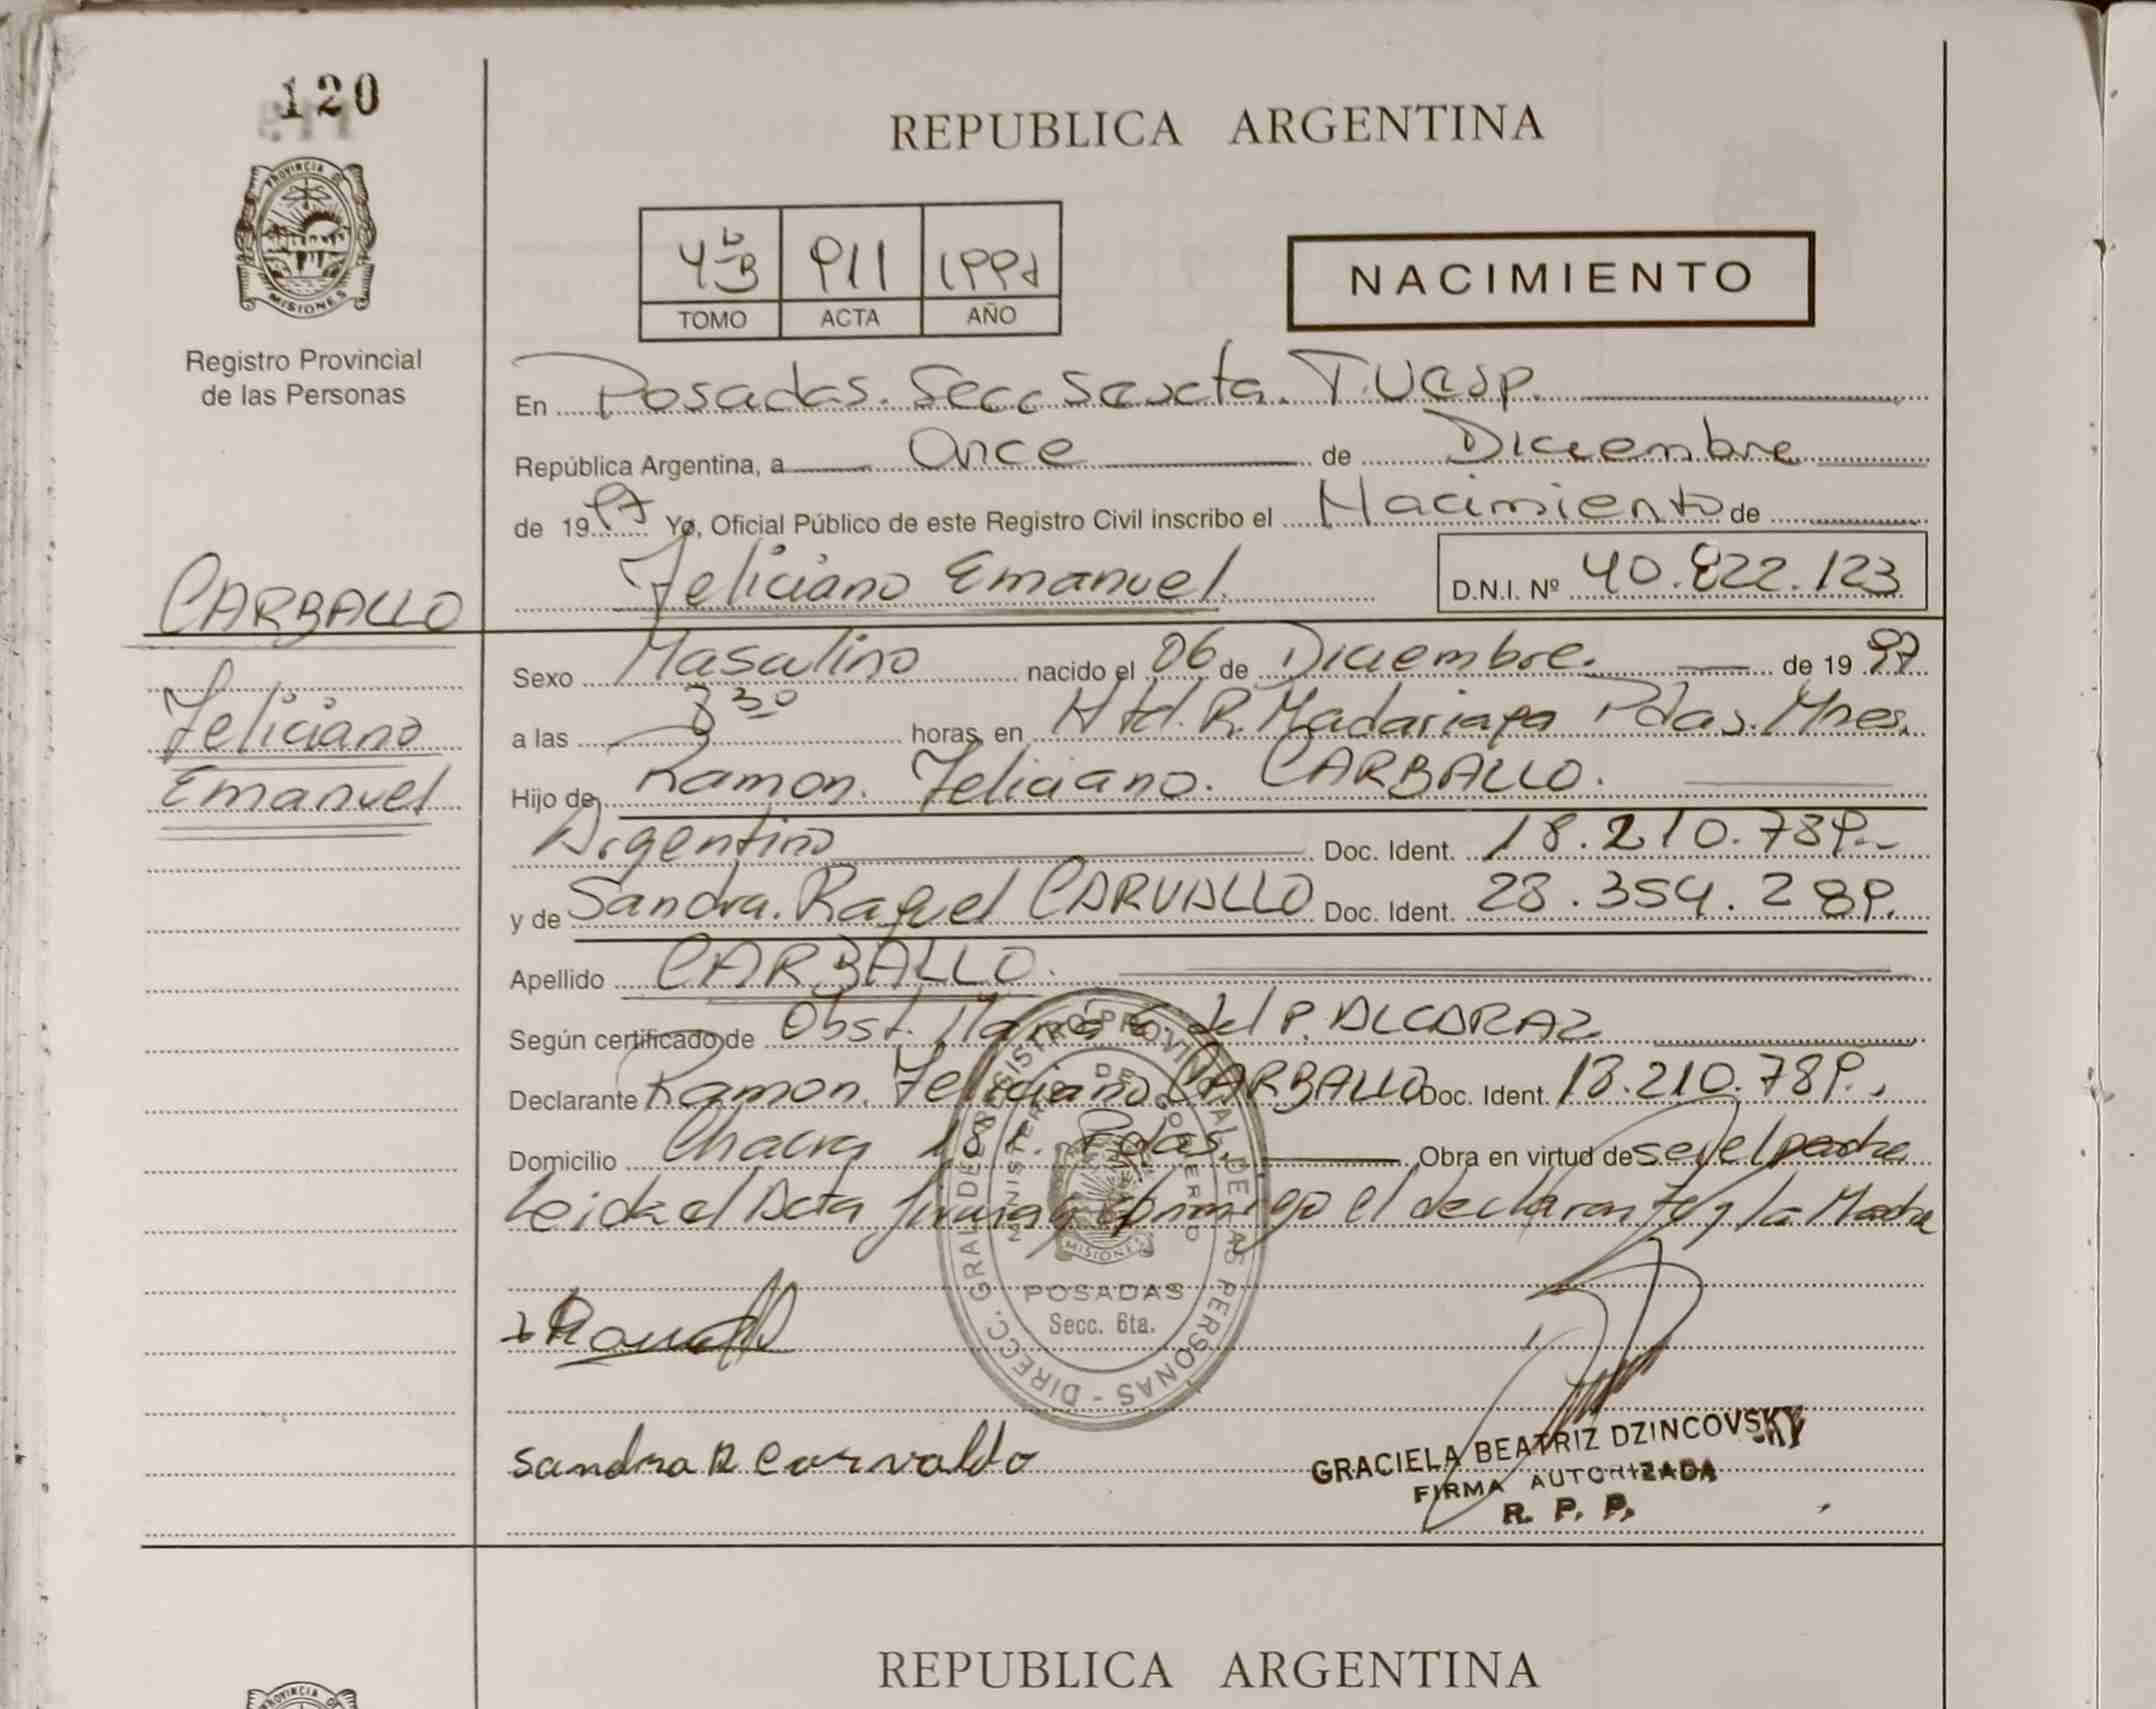 120
PROVINCIA DE
MISIONES
Registro Provincial
de las Personas
REPUBLICA ARGENTINA
911 1997
TOMO ACTA AÑO
NACIMIENTO
En Posadas. Secc Sexcta.
República Argentina, a Once de Diciembre
de 1997 Yo, Oficial Público de este Registro Civil inscribo el Nacimiento de
Feliciano Emanuel. D.N.I. Nº 40.822.123
CARBALLO
Feliciano
Emanuel
Sexo Masculino nacido el 06 de Diciembre. de 1997
a las horas, en Htal. R. Madariaga Pdas. Mnes.
Hijo de Ramon. Feliciano. CARBALLO.
Argentino Doc. Ident. 18.210.789.-
y de Sandra. Raquel CARVALLO Doc. Ident. 28.354.289.
Apellido CARBALLO.
Según certificado de Obst. del P. ALCARAZ
Declarante Ramon. Feliciano CARBALLO Doc. Ident. 18.210.789.
Domicilio Chacra Pdas. Obra en virtud de ser el padre
Leida el Acta el declarante y la Madre
DIRECC. GRAL DEL REGISTRO PROVINCIAL DE LAS PERSONAS
MINISTERIO DE GOBIERNO
MISIONES
POSADAS
Secc. 6ta.
Sandra R Carvallo
GRACIELA BEATRIZ DZINCOVSKY
FIRMA AUTORIZADA
R. P. P.
REPUBLICA ARGENTINA
PROVINCIA